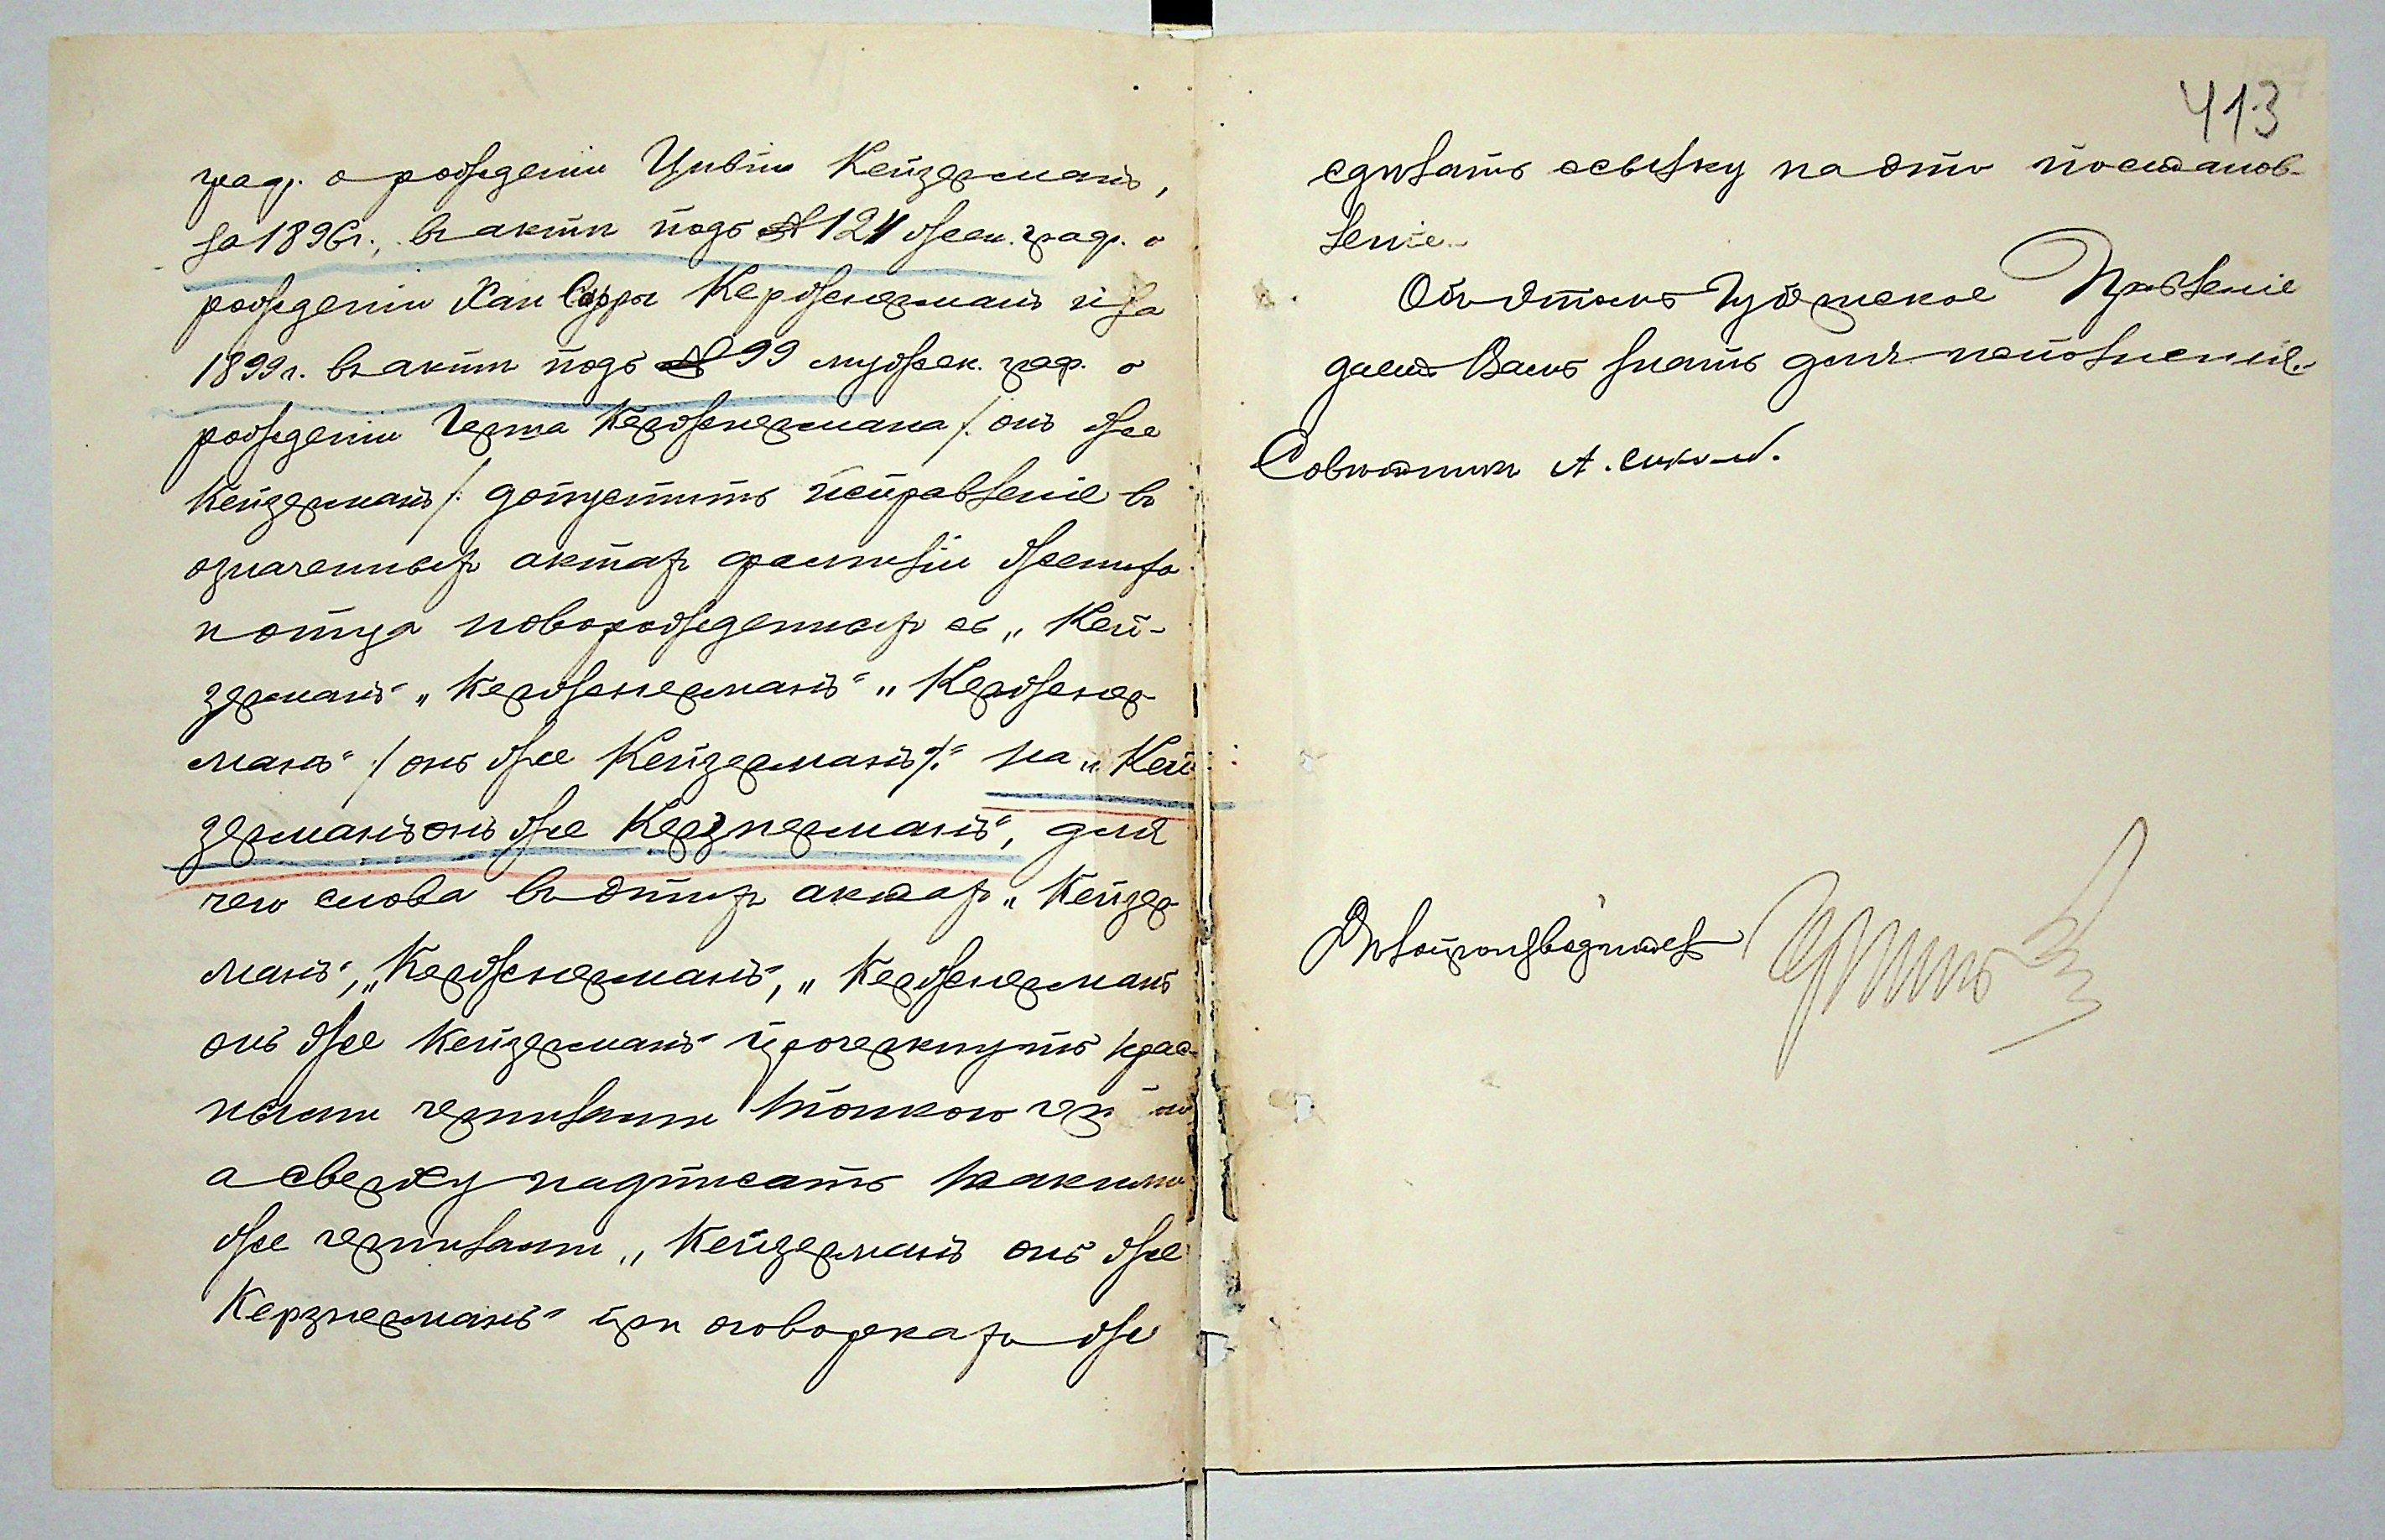 граф. о рожденiи Цивiи Кейзерманъ,
за 1896 г., въ актѣ подъ № 124 жен. граф. о
рожденiи Хаи Сурры Кержнерманъ и за
1899 г. въ актѣ подъ № 99 мужеск. граф. о
рожденiи Герша Кержнермана /: онъ же
Кейзерманъ /: допустить исправленiе въ
означенныхъ актахъ фамилiи жениха
и отца новорожденныхъ съ „Кей-
зерманъ" „Кержнерманъ" „Кержнер-
манъ" /: онъ же Кейзерманъ /:" на „Кей-
зерманъ онъ же Керзнерманъ", для
чего слова въ этихъ актахъ „Кейзер-
манъ", „Кержнерманъ", „Кержнерманъ
онъ же Кейзерманъ" прочеркнуть крас-
ными чернилами тонкою чертою
а сверху надписать такими
же чернилами „Кейзерманъ онъ же
Керзнерманъ" при оговоркахъ же
413
сдѣлать ссылку на это постанов-
ленiе.
Объ этомъ Губернское Правленiе
даетъ Вамъ знать для исполненiя.
Совѣтникъ А.
Дѣлопроизводитель